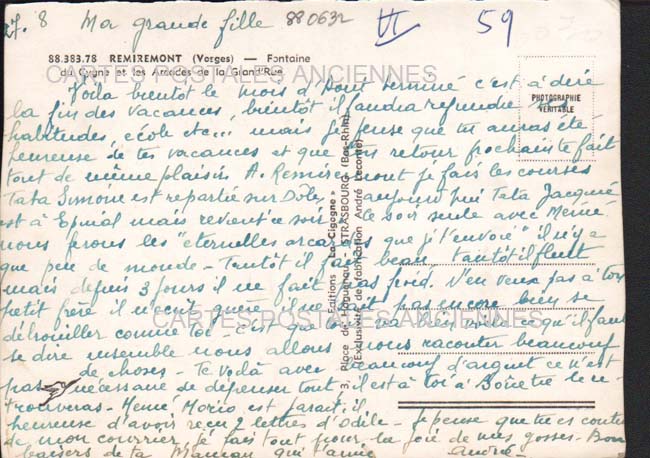 27.8 Ma grande fille 880632 VI 59
88.383.78 REMIREMONT (Vosges) — Fontaine
du Cygne et les Arcades de la Grand'Rue
CARTES POSTALES ANCIENNES
PHOTOGRAPHIE
VÉRITABLE
Voila bientôt le mois d'Aout terminé c'est à dire
la fin des vacances, bientôt il faudra reprendre les
habitudes, école etc... mais je pense que tu auras été
heureuse de tes vacances et que ton retour prochain te fait
tout de même plaisir. A Remiremont je fais les courses
Tata Simone est repartie sur Dôle, aujourd'hui Tata Jacquie
est à Epinal mais revient ce soir, le soir seule avec Mémé
nous ferons les "éternelles arcades que j't'envoie" il n'y a
que peu de monde - Tantôt il fait beau, tantôt il pleut
mais depuis 3 jours il ne fait pas froid. N'en veux pas à ton
petit frère il n'écrit guère, il ne sait pas encore bien se
débrouiller comme toi c'est que
se dire ensemble nous allons nous raconter beaucoup
de choses - Te voilà avec beaucoup d'argent ce n'est
pas nécessaire de dépenser tout, il est à toi
trouveras - Mémé est parait-il
heureuse d'avoir reçu 2 lettres d'Odile - Je pense que tu es contente
de mon courrier, je fais tout pour la joie de mes gosses - Bons
baisers de ta Maman qui t'aime Andrée
Editions "La Cigogne"
3, Place de Haguenau, STRASBOURG (Bas-Rhin)
Exclusivité de fabrication André Leconte
CARTES POSTALES ANCIENNES